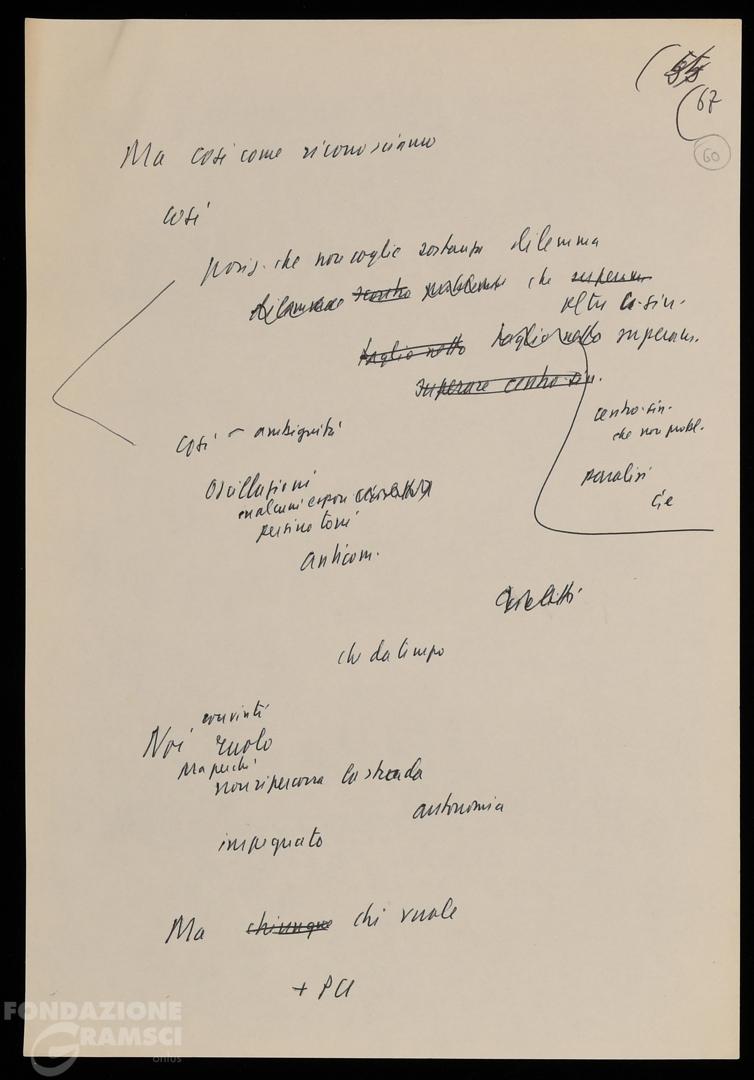 67
60
Ma così come riconosciamo
così
posiz. che non voglia dilemma
che superam
oltre c-sin.
taglio netto taglio netto superam.
superare centro-sin.
centro-sin.
che non probl.
così ambiguità
paralisi
oscillazioni
in alcuni espon
persino toni
anticom.
che da tempo
convinti
Noi ruolo
Ma perché
non ripercorra la strada
autonomia
impegnato
Ma chiunque chi vuole
+ PCI
FONDAZIONE
GRAMSCI
onlus